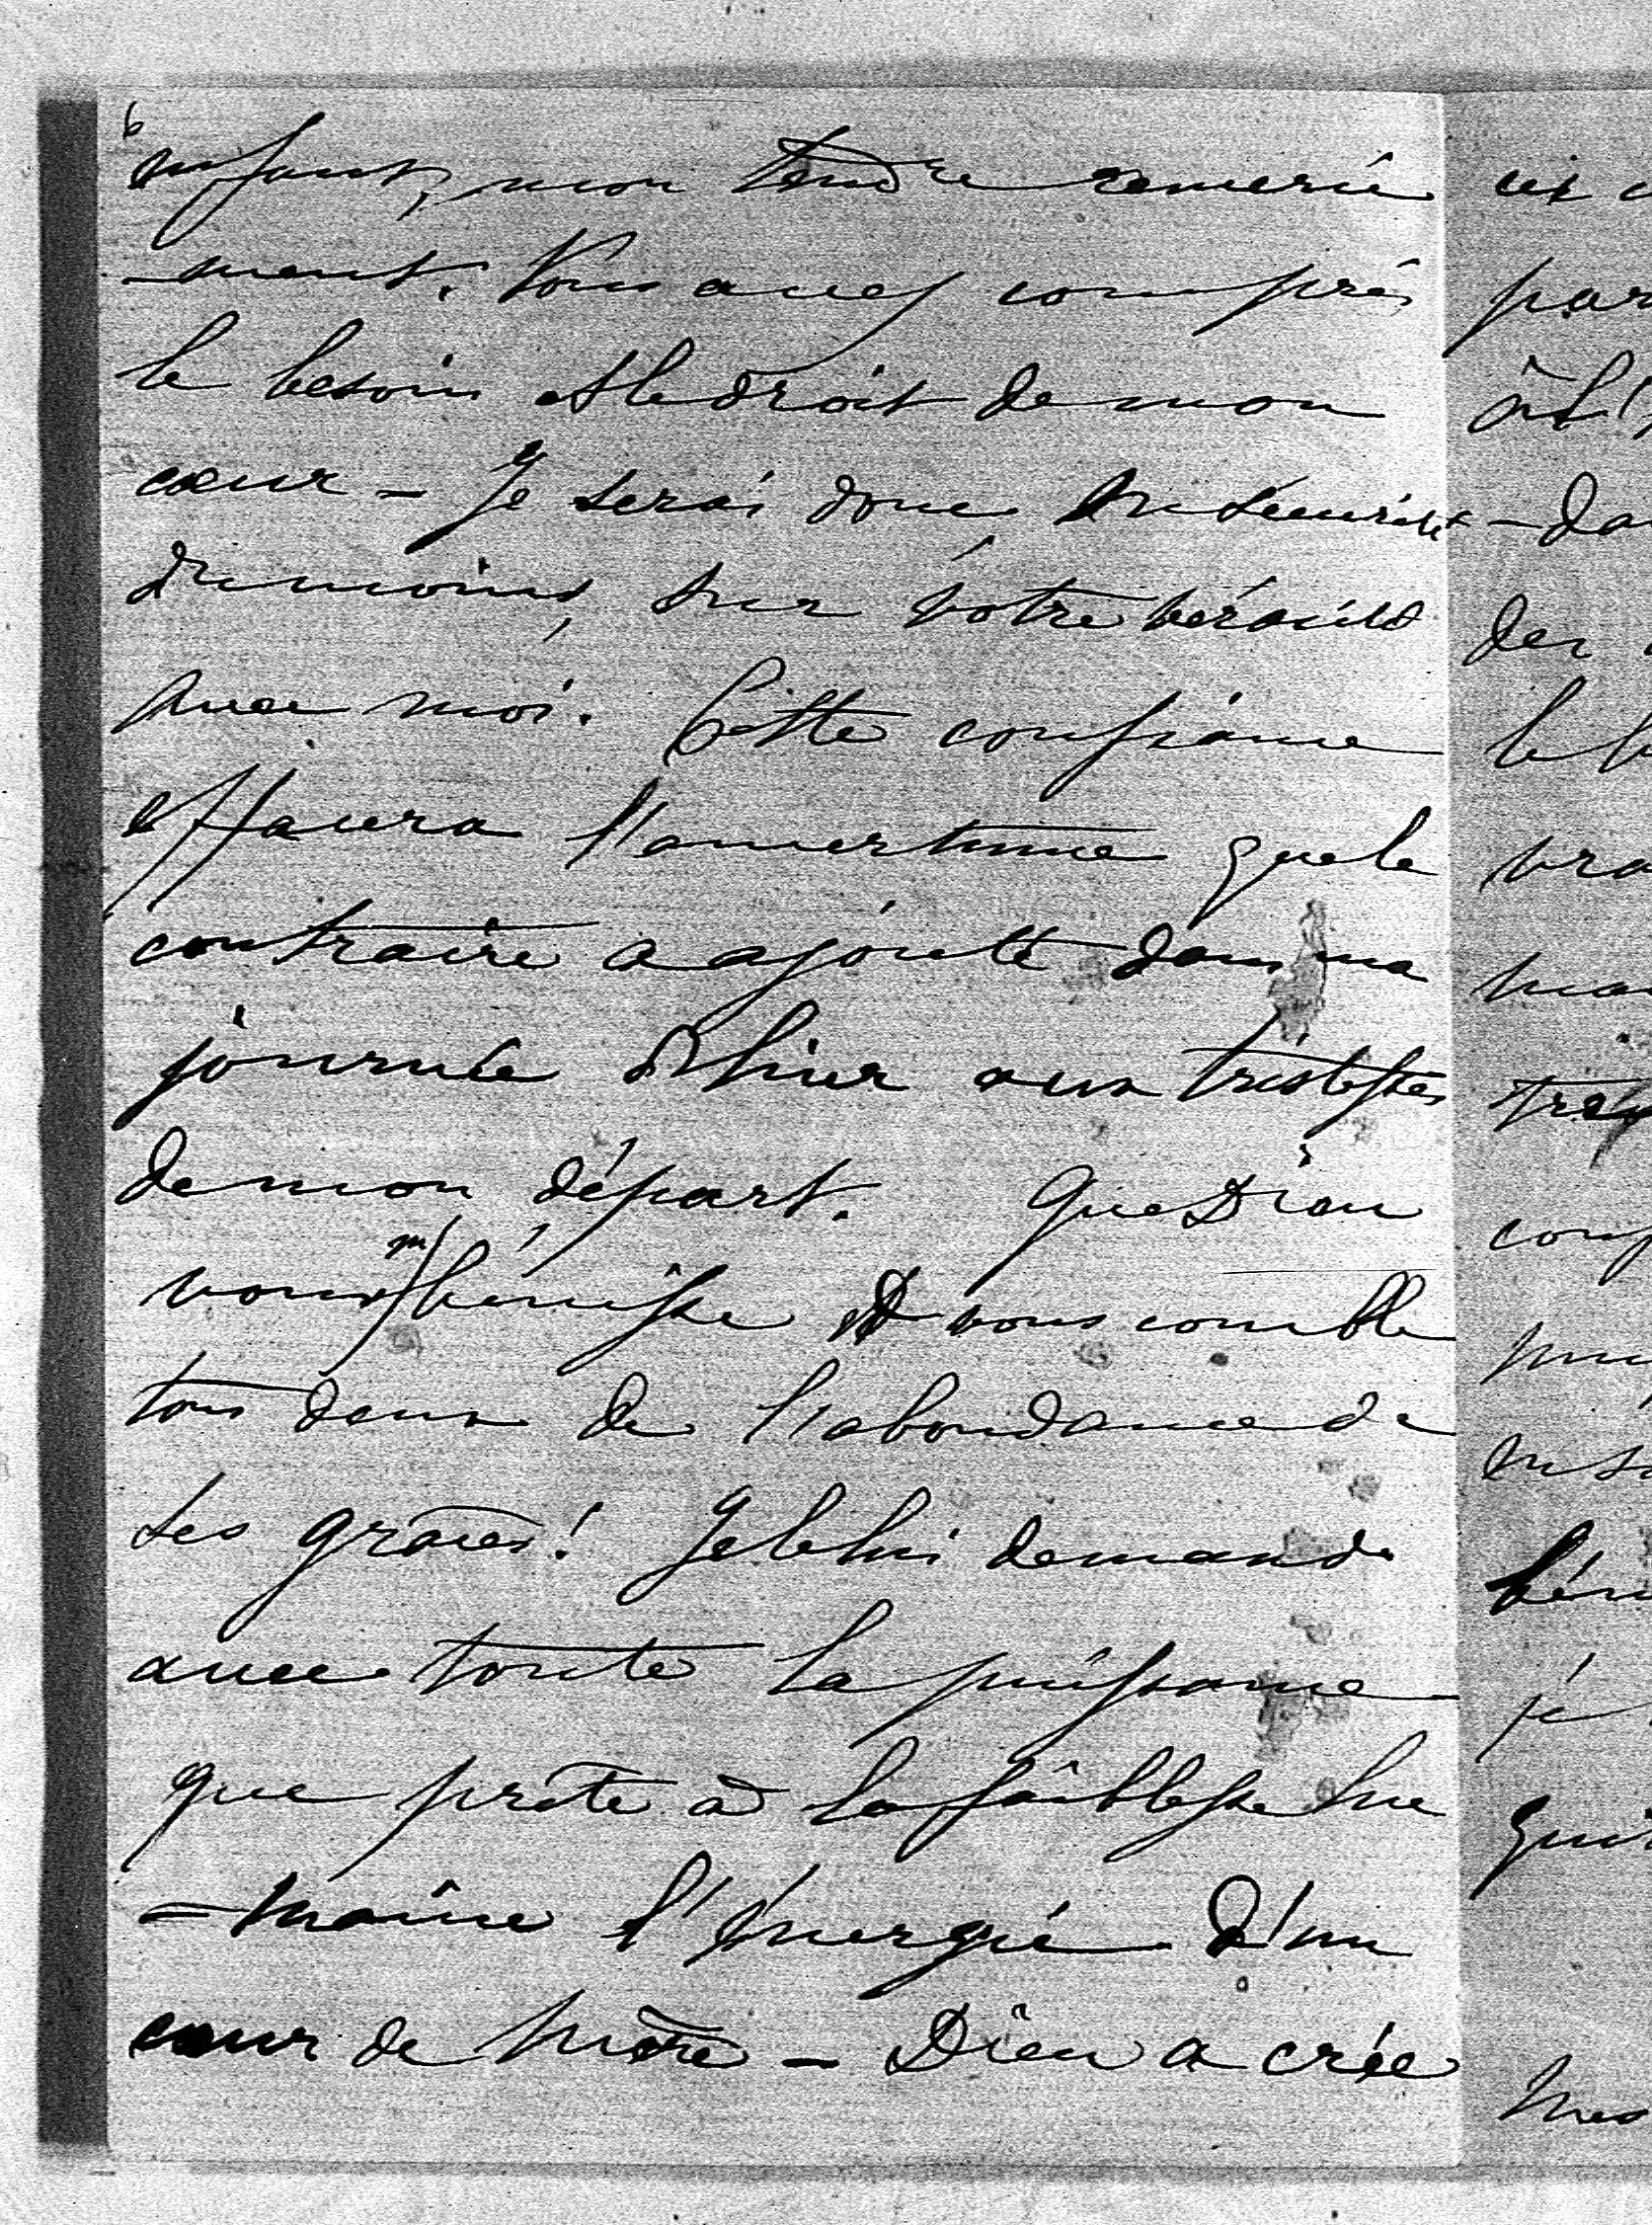 6
enfants, mon tendre remercie
-ment. Vous avez compris
le besoin et le droit de mon
cœur - Je serai donc en sécurité
du moins, sur votre véracité
avec moi. Cette confiance
effacera l'amertume que le
contraire a ajouté dans ma
journée d'hier aux tristesses
de mon départ. Que Dieu
vous bénisse et vous comble
tous deux de l'abondance de
ses grâces! Je le lui demande
avec toute la puissance
que prête à la faiblesse hu
-maine l'énergie d'un
cœur de mère - Dieu a créé